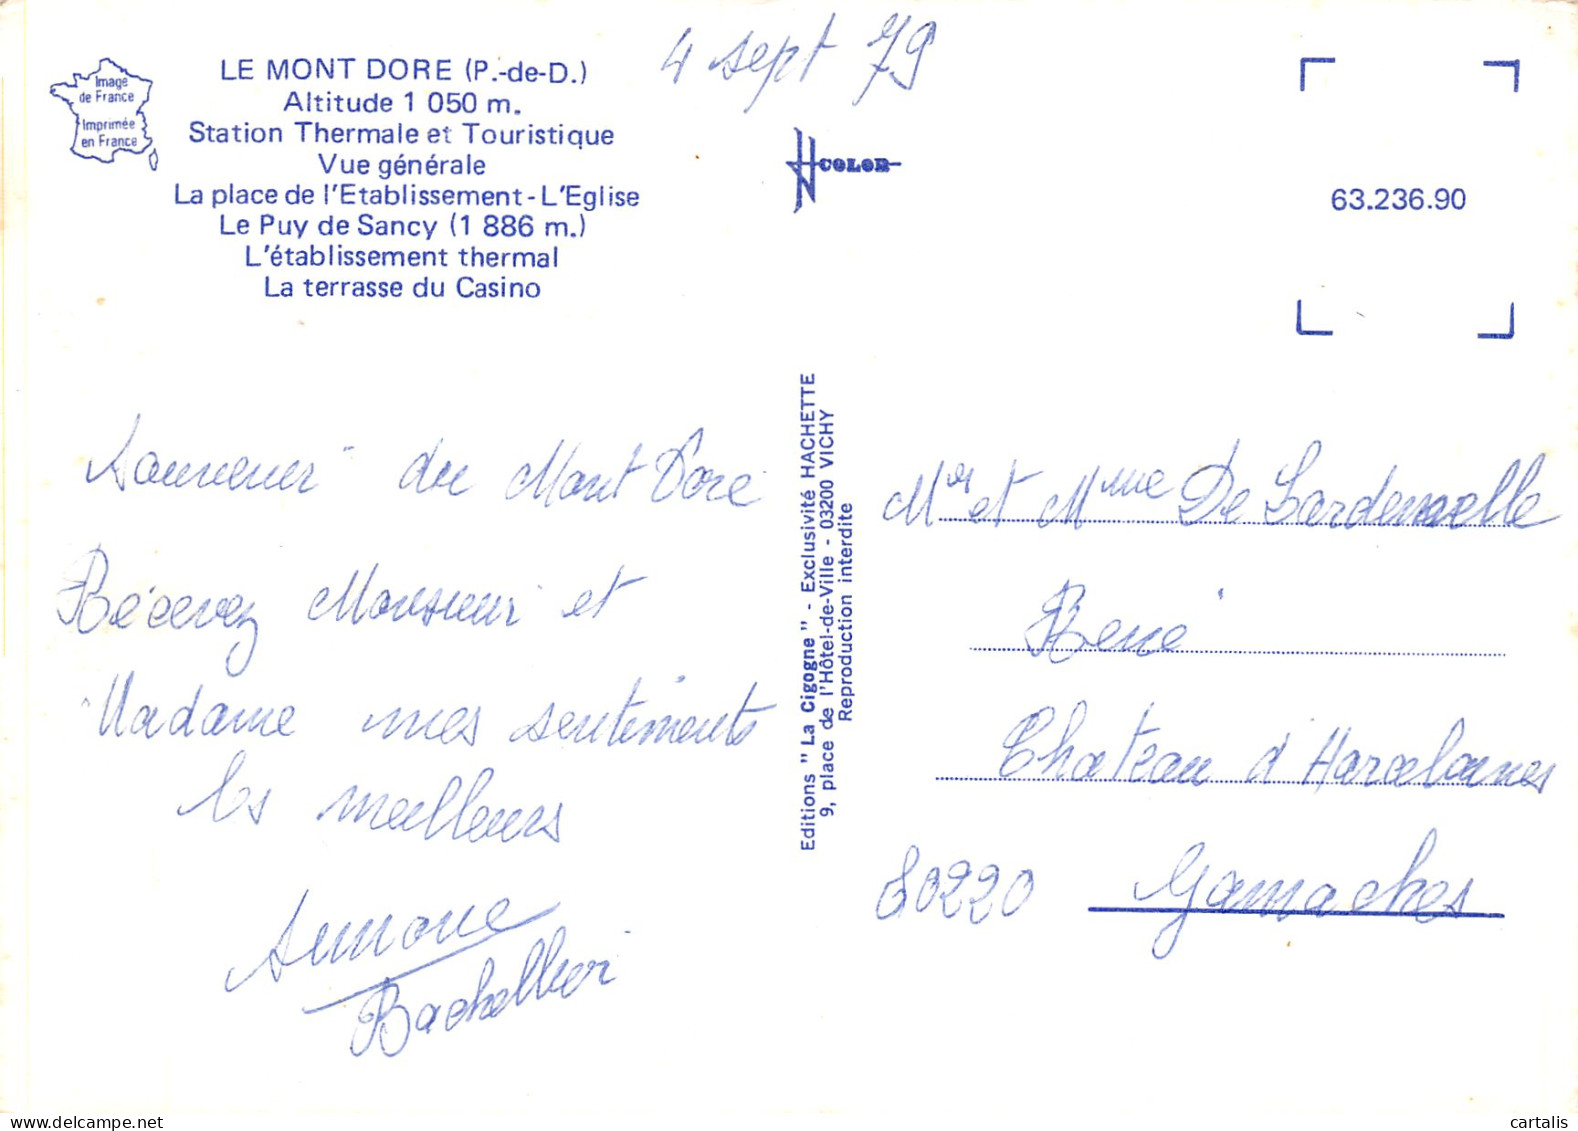 4 sept 79
Image
de France
Imprimée
en France
LE MONT DORE (P.-de-D.)
Altitude 1 050 m.
Station Thermale et Touristique
Vue générale
La place de l'Etablissement - L'Eglise
Le Puy de Sancy (1 886 m.)
L'établissement thermal
La terrasse du Casino
COLOR
63.236.90
Souvenir du Mont Dore
Récevez Monsieur et
Madame mes sentiments
les meilleurs
Simone
Bachellier
Editions " La Cigogne " - Exclusivité HACHETTE
9, place de l'Hôtel-de-Ville - 03200 VICHY
Reproduction interdite
Mr et Mme De
René
Chateau d'Harcelaines
80220 Gamaches
cartalis